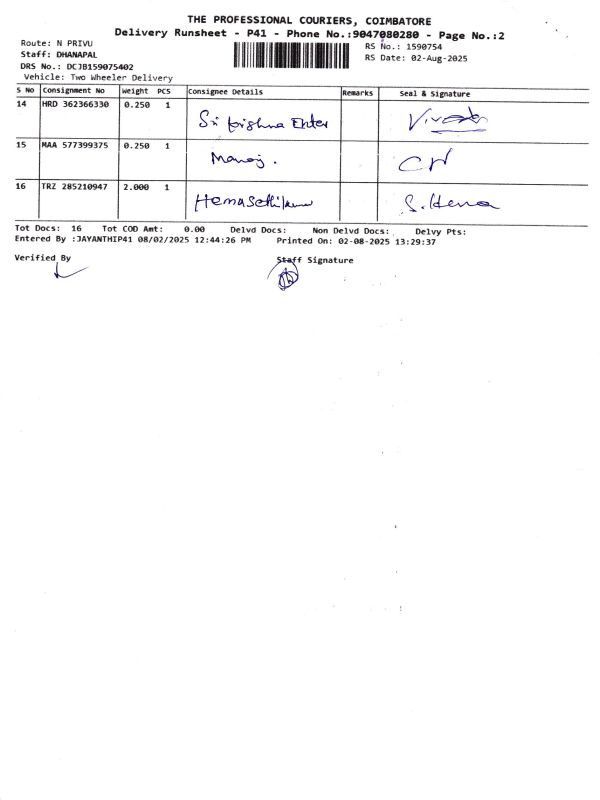 THE PROFESSIONAL COURIERS, COIMBATORE
Delivery Runsheet - P41 - Phone No.:9047080280 - Page No.:2
Route: N PRIVU
RS No.: 1590754
Staff: DHANAPAL
RS Date: 02-Aug-2025
DRS No.: DCJB159075402
Vehicle: Two Wheeler Delivery
S No Consignment No Weight PCS Consignee Details Remarks Seal & Signature
14 HRD 362366330 0.250 1 Sri krishna Enter
15 MAA 577399375 0.250 1 Manoj.
16 TRZ 285210947 2.000 1 S. Hema
Tot Docs: 16 Tot COD Amt: 0.00 Delvd Docs: Non Delvd Docs: Delvy Pts:
Entered By :JAYANTHIP41 08/02/2025 12:44:26 PM Printed On: 02-08-2025 13:29:37
Verified By Staff Signature